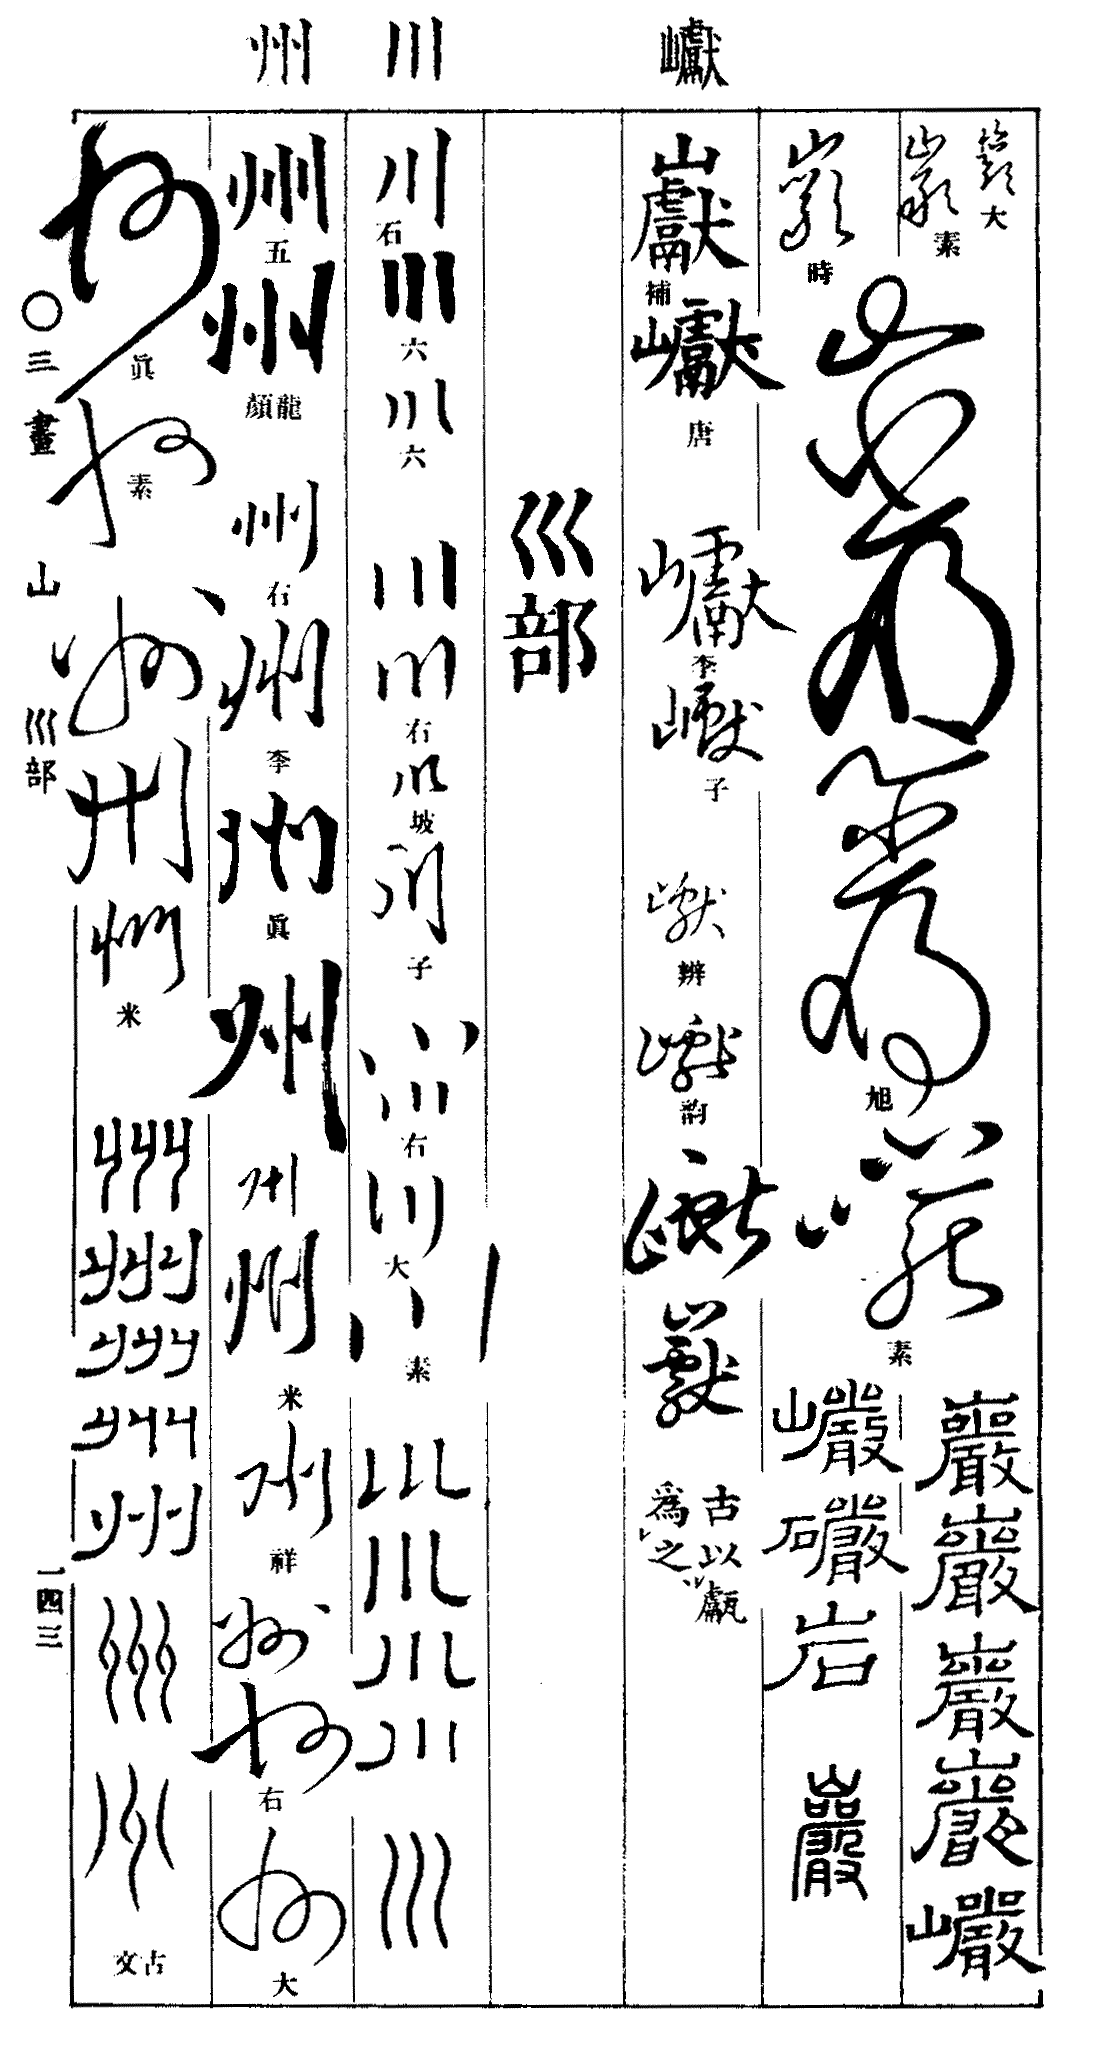 巘
川
州
巖
大
巖
素
巖
時
巖
巖
旭
巖
素
巖
巖
巖
巖
巖
巖
礹
岩
巖
巘
補
巘
唐
巘
李
巘
子
巘
辨
巘
韵
巘
巘
古以甗
為之
巛部
川
石
川
六
川
六
川
川
右
川
坡
川
子
川
川
右
川
大
川
素
川
川
川
川
川
州
五
州
龍顏
州
右
州
李
州
眞
州
州
州
米
州
祥
州
州
右
州
大
州
眞
州
素
州
州
州
米
州
州
州
州
州
州
州
古文
〇三畫
山
巛部
一四三